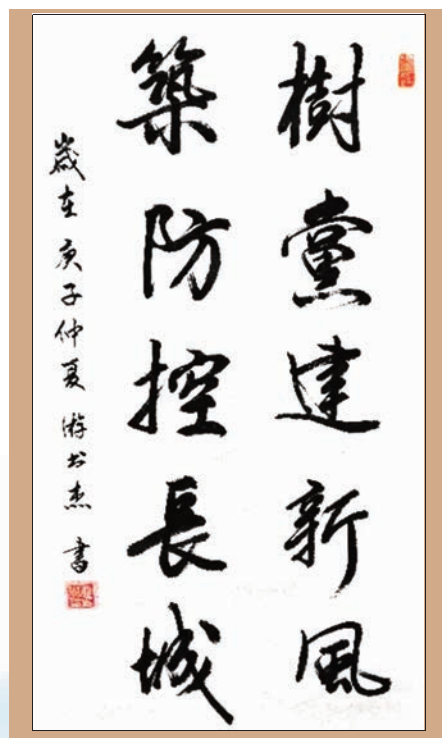 樹黨建新風
築防控長城
歲在庚子仲夏 游書杰 書